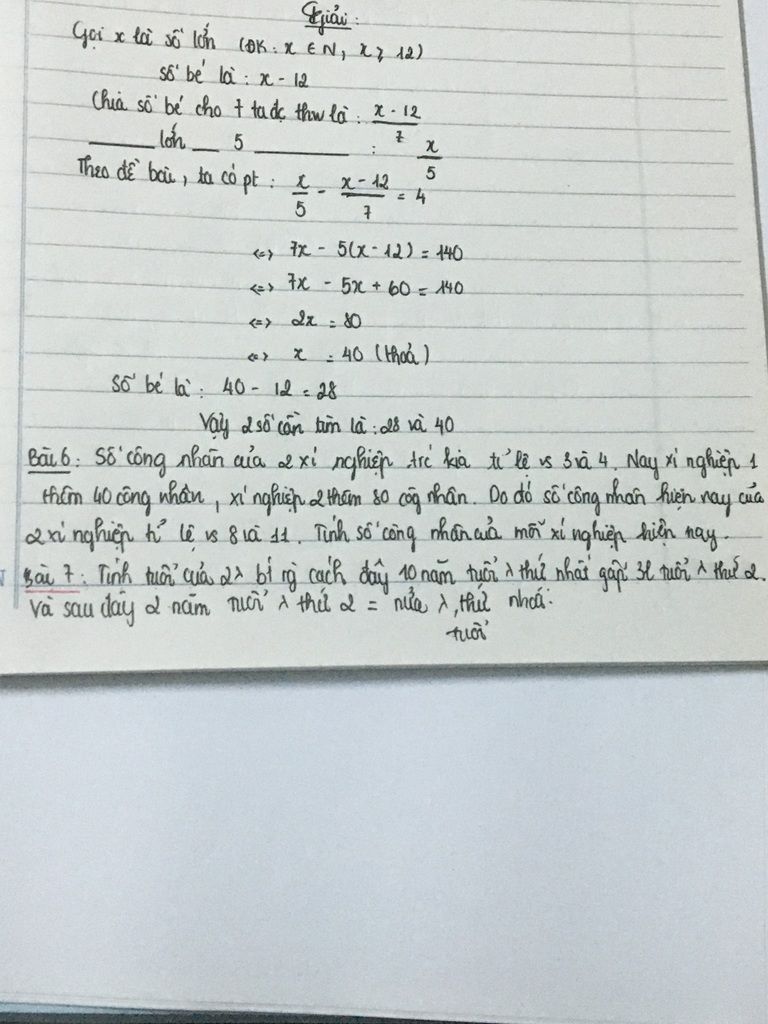 Giải:
Gọi x là số lớn (ĐK: x ∈ N, x ≥ 12)
số bé là: x - 12
Chia số bé cho 7 ta đc thw là: x - 12 / 7
lớn 5 : x / 5
Theo đề bài, ta có pt: x/5 - x - 12/7 = 4
<=> 7x - 5(x - 12) = 140
<=> 7x - 5x + 60 = 140
<=> 2x = 80
<=> x = 40 (thoả)
Số bé là: 40 - 12 = 28
Vậy 2 số cần tìm là: 28 và 40
Bài 6: Số công nhân của 2 xí nghiệp trc kia tỉ lệ vs 3 và 4. Nay xí nghiệp 1
thêm 40 công nhân, xí nghiệp 2 thêm 80 côg nhân. Do đó số công nhân hiện nay của
2 xí nghiệp tỉ lệ vs 8 và 11. Tính số công nhân của mỗi xí nghiệp hiện nay.
Bài 7: Tính tuổi của 2λ bí rg cách đây 10 năm tuổi λ thứ nhất gấp 3l tuổi λ thứ 2.
Và sau đây 2 năm tuổi λ thứ 2 = nửa λ, thứ nhất.
tuổi